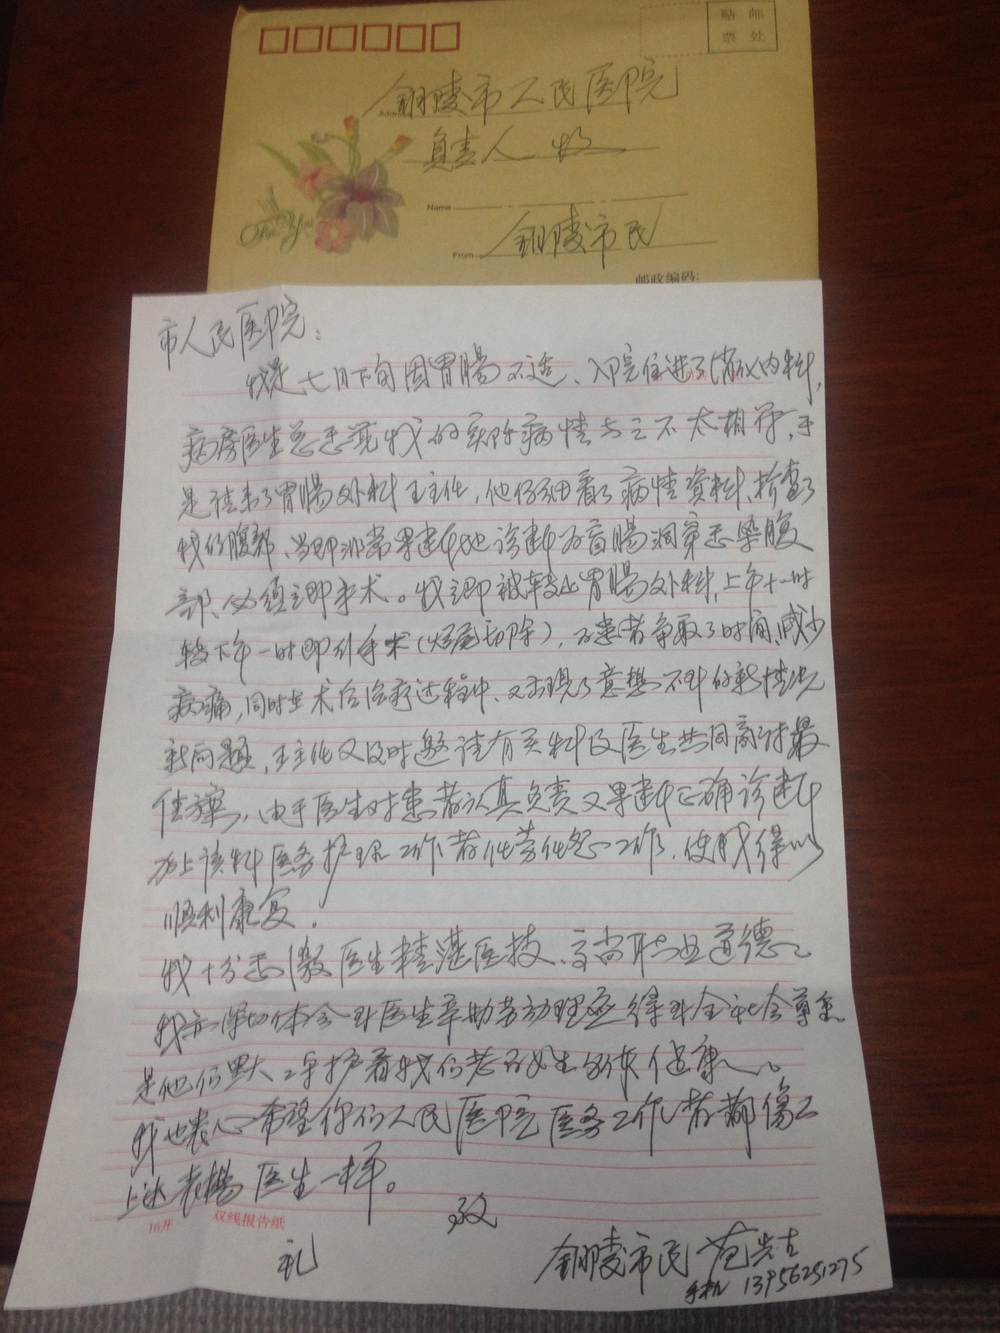 贴 邮
票 处
Address
铜陵市人民医院
负责人 收
Name
Thank You
From
铜陵市民
邮政编码:
市人民医院:
我是七月下旬因胃肠不适、入院住进了消化内科,
病房医生总感觉我的实际病情与之不太相符,于
是请来了胃肠外科王主任,他仔细看了病情资料、检查了
我的腹部、当即非常果断地诊断为盲肠洞穿感染腹
部、必须立即手术。我立即被转出胃肠外科,上午十一时
转下午一时即行手术(烂尾切除),为患者争取了时间、减少
病痛,同时在术后治疗过程中、又出现了意想不到的新情况
新问题,王主任又及时邀请有关科及医生共同商讨最
佳方案,由于医生对患者认真负责又果断正确诊断
加上该科医务护理工作者任劳任怨工作,使我得以
顺利康复.
我十分感激医生精湛医技、高尚职业道德
我亦深切体会到医生辛勤劳动理应得到全社会尊重
是他们默々守护着我们老百姓生的健康。
我也衷心希望你们人民医院医务工作者都像
上述表扬医生一样。
16开 双线报告纸
致
礼
铜陵市民 范先去
手机 13956251275